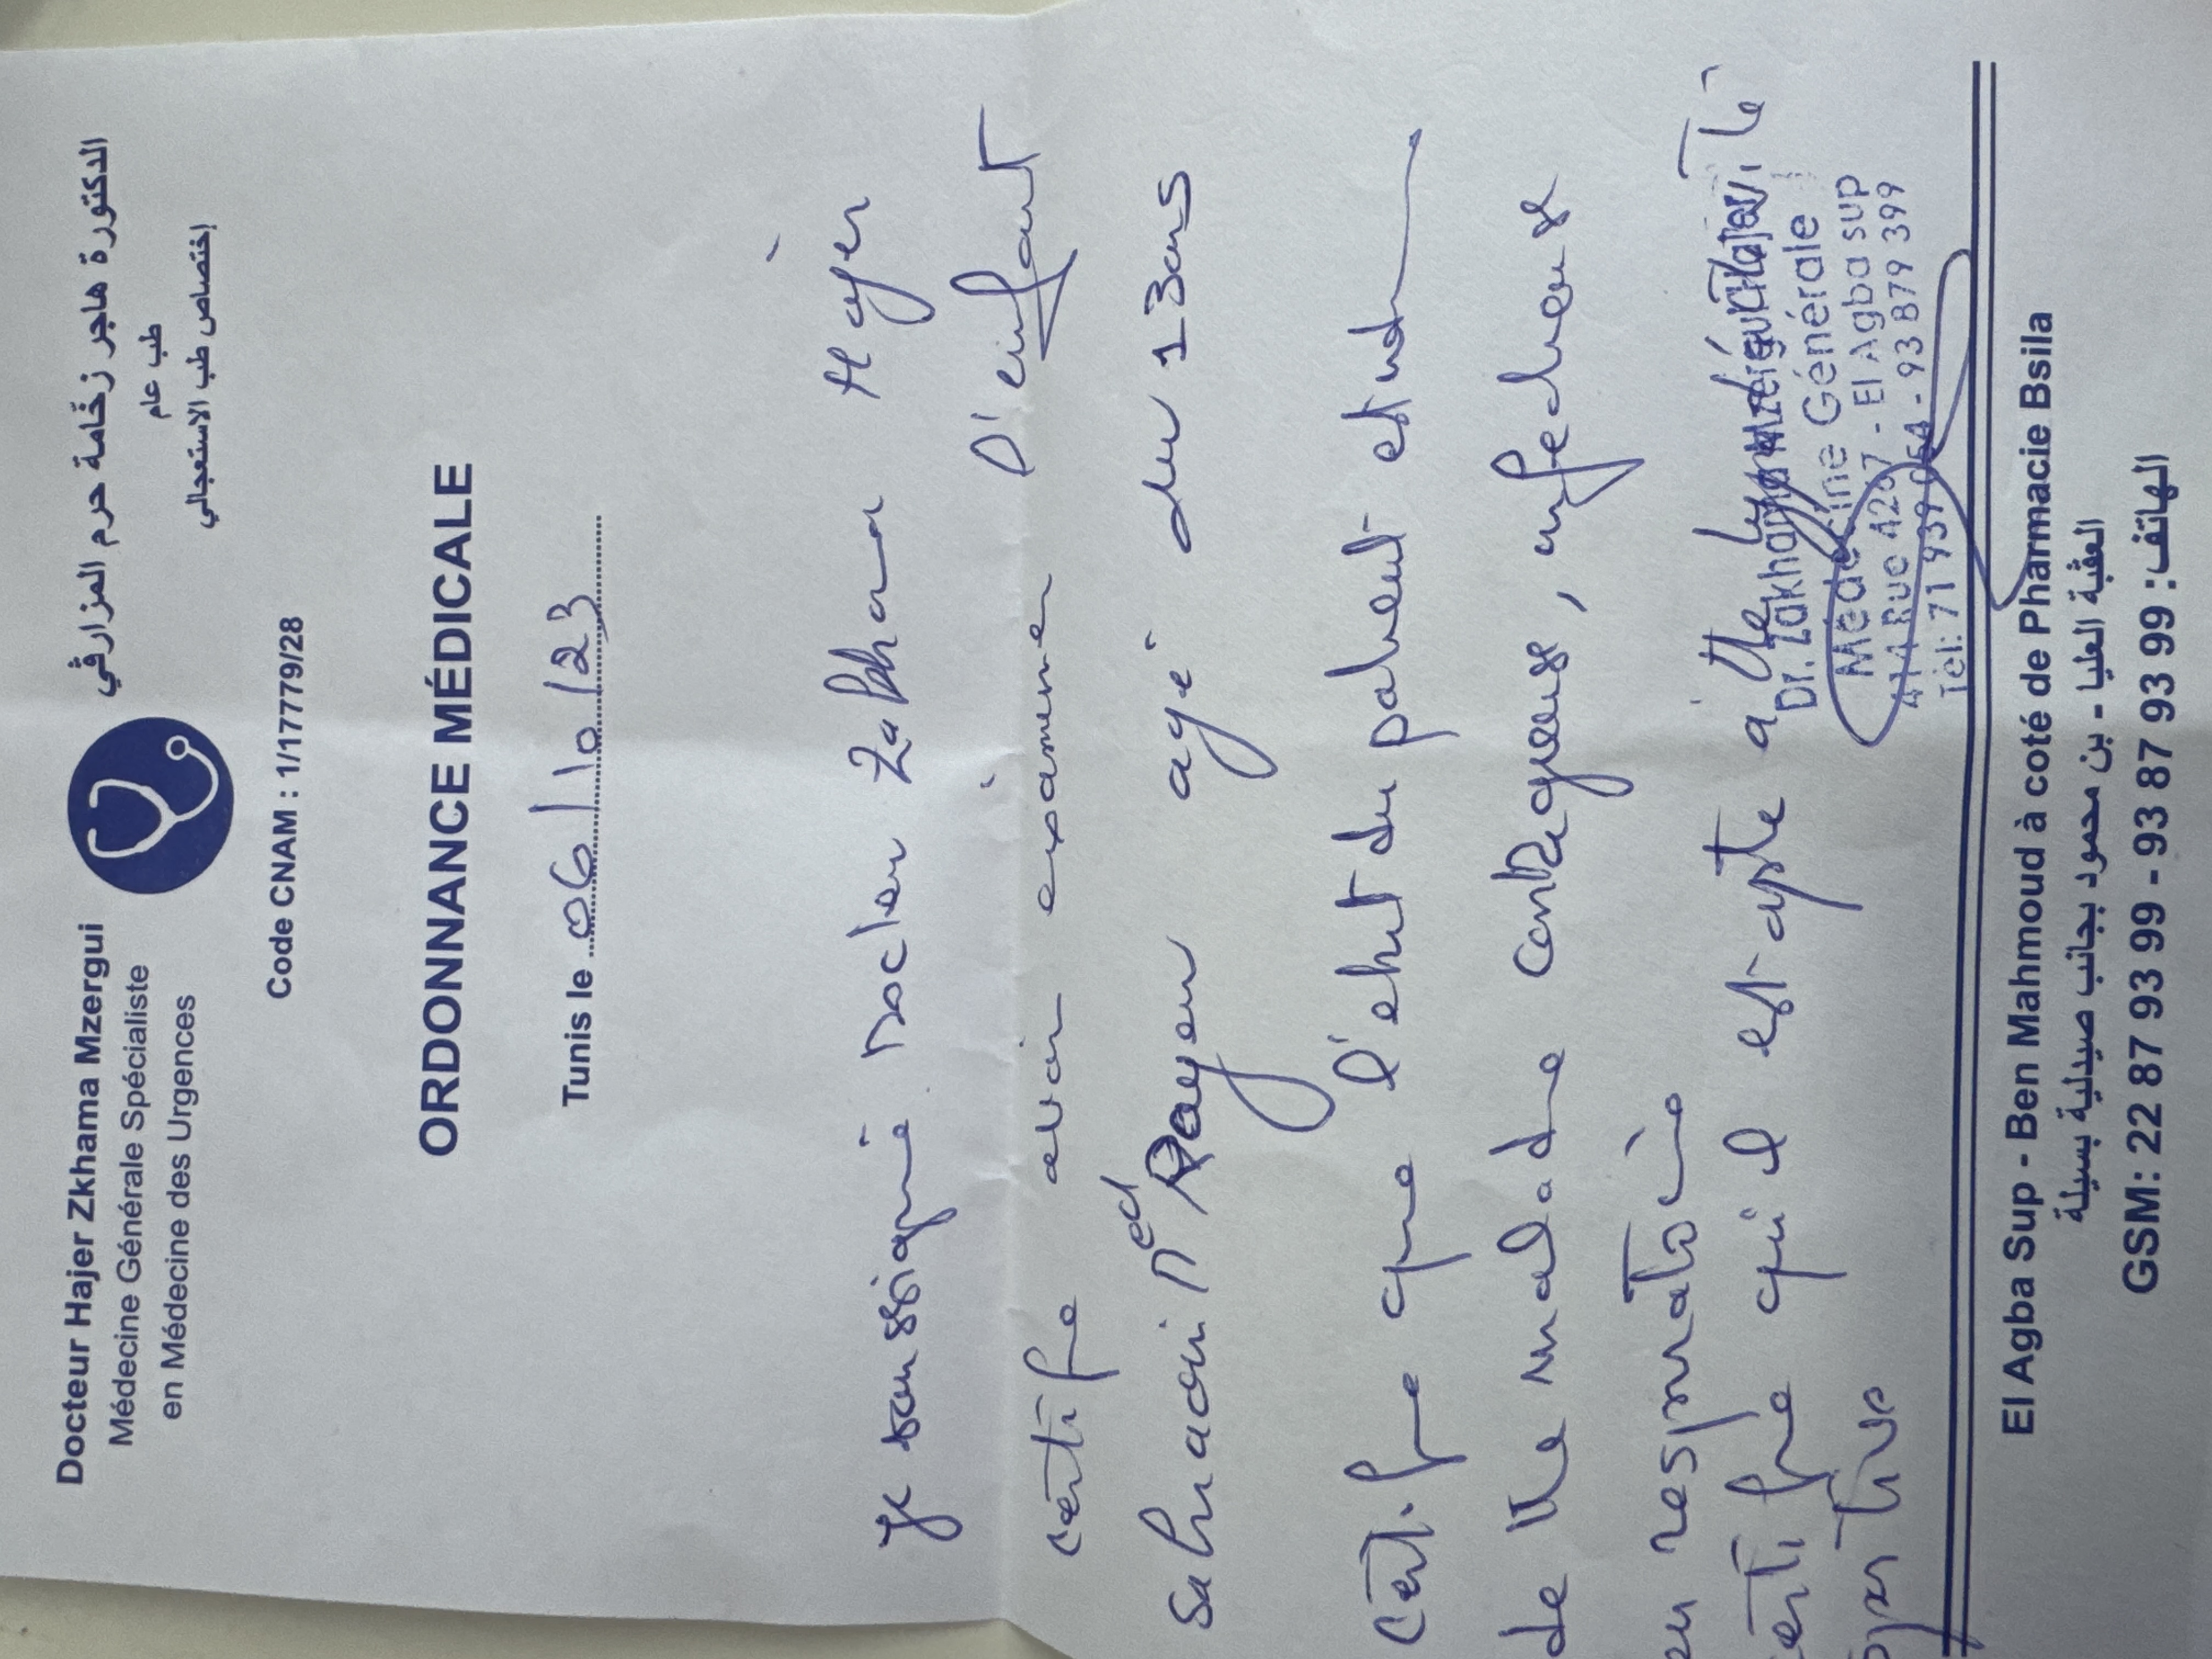 Docteur Hajer Zkhama Mzergui
Médecine Générale Spécialiste
en Médecine des Urgences
الدكتورة هاجر زخّامة حرم المزارقي
طب عام
إختصاص طب الاستعجالي
Code CNAM : 1/17779/28
ORDONNANCE MÉDICALE
Tunis le 06/10/23
Je soussigné Docteur Hajer
certifie avoir examiner l'enfant
Med Rayen agé de 13ans
certifie que l'etat du patient est ind
de tte maladie contagieuse, infectieuse
respiratoire
certifie qu'il est apte à
sportive
Dr. Zakhama
Médecine Générale
Rue 4267 - El Agba sup
Tél: 71 939 064 - 93 879 399
El Agba Sup - Ben Mahmoud à coté de Pharmacie Bsila
العقبة العليا - بن محمود بجانب صيدلية بسيلة
GSM: 22 87 93 99 - 93 87 93 99 :الهاتف